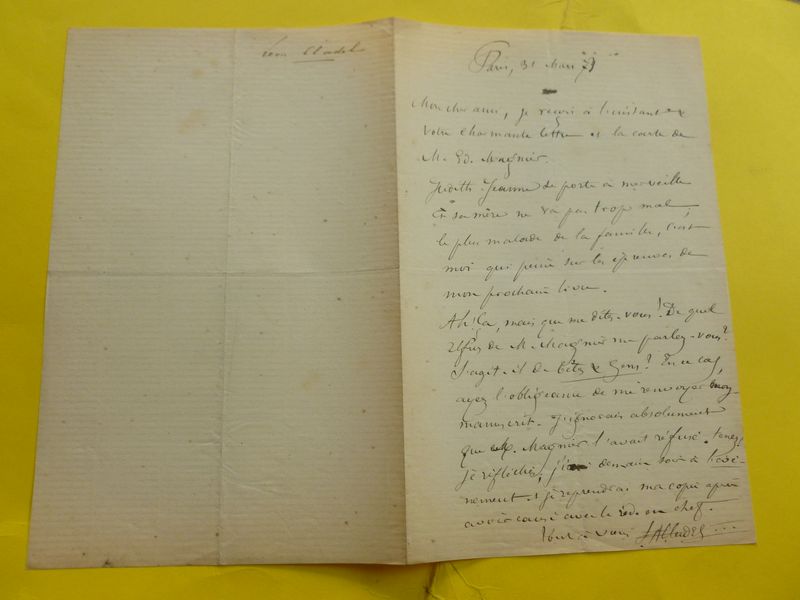 Léon Cladel
Paris, 31 Mars
Mon cher ami, je reçois à l'instant
votre charmante lettre et la carte de
M. Ed. Magnier.
Judith-Jeanne se porte à merveille
et sa mère ne va pas trop mal;
le plus malade de la famille, c'est
moi qui peine sur les épreuves de
mon prochain livre.
Ah! Ça, mais que me dites-vous! De quel
refus de M. Magnier me parlez-vous?
S'agit-il de Bêtes & Gens? En ce cas,
ayez l'obligeance de me renvoyer mon
manuscrit. J'ignorais absolument
que M. Magnier l'avait réfusé. tenez,
je réfléchis, j'irai demain soir à l'évé-
nement et je reprendrai ma copie après
avoir causé avec le réd. en chef.
Tout à vous